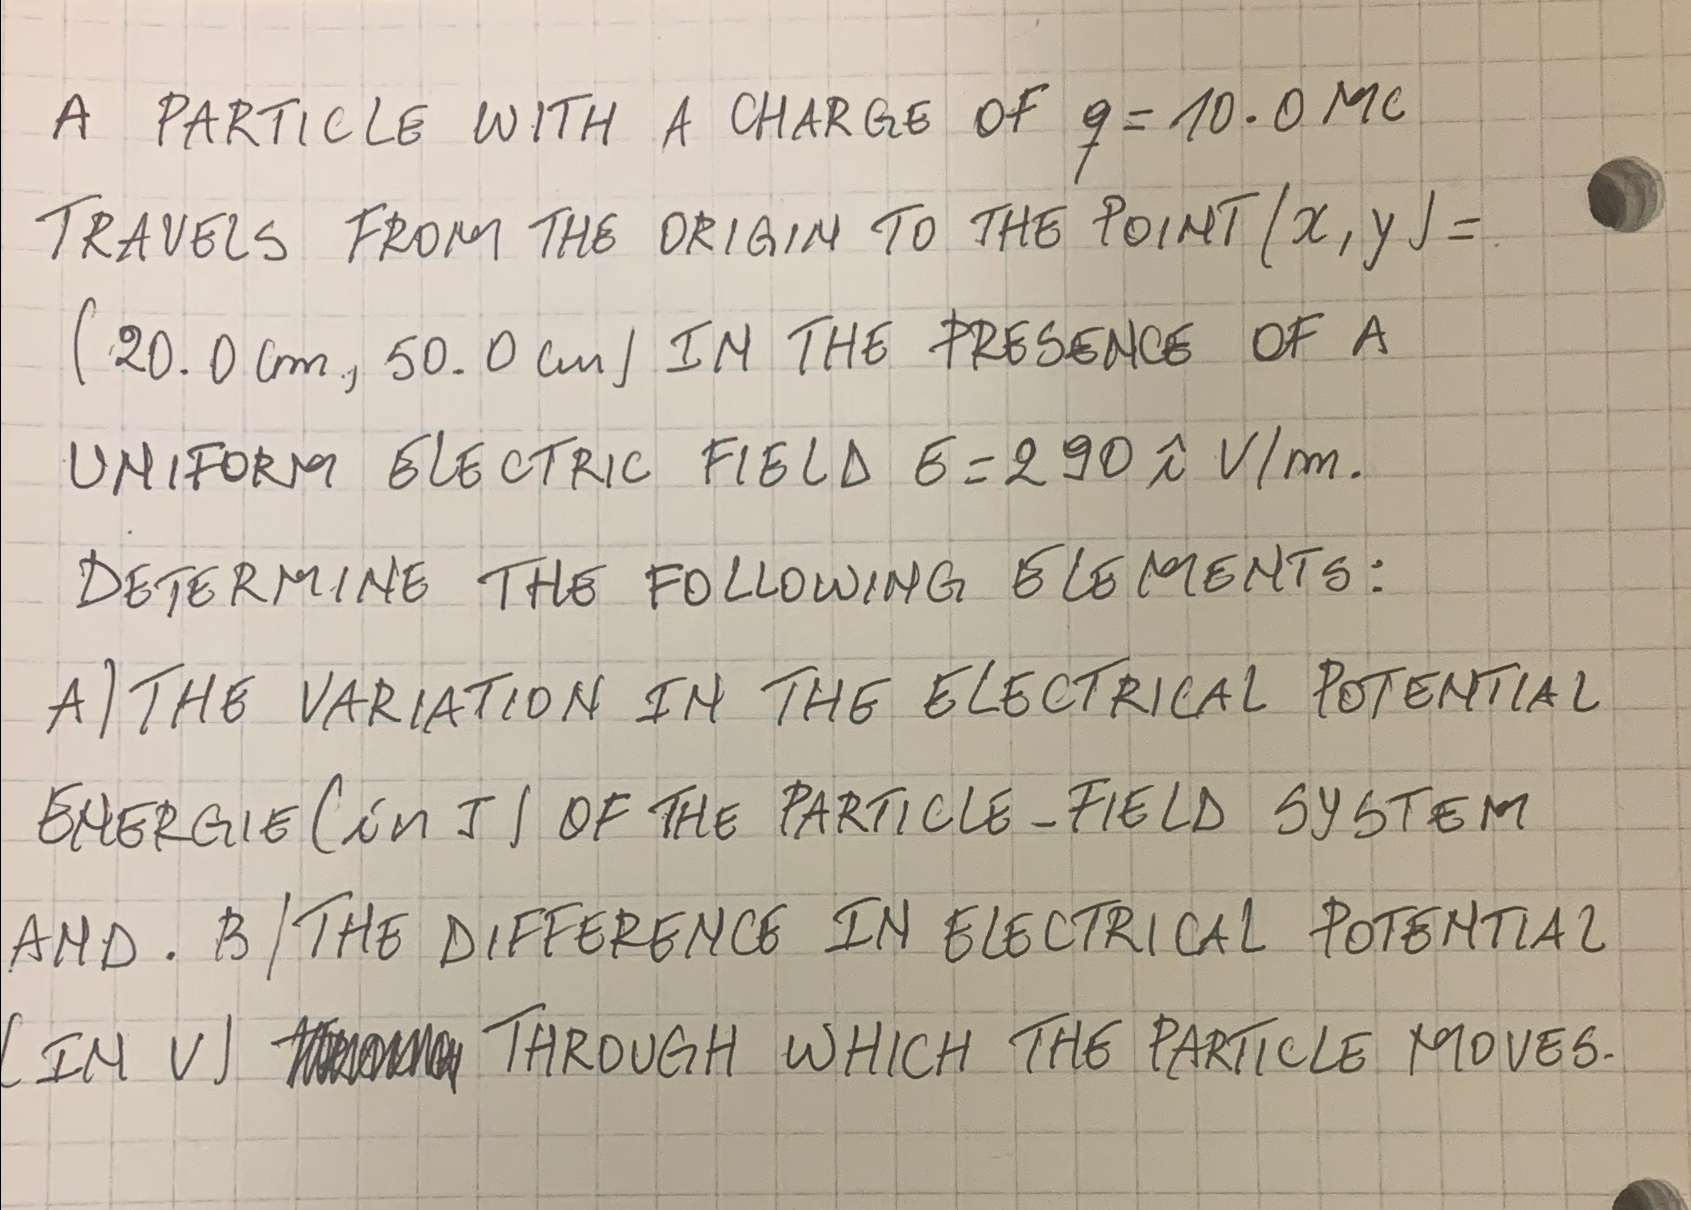 A PARTICLE WITH A CHARGE OF q = 10.0 MC
TRAVELS FROM THE ORIGIN TO THE POINT (x, y) =
(20.0 cm, 50.0 cm) IN THE PRESENCE OF A
UNIFORM ELECTRIC FIELD E = 290 î V/m.
DETERMINE THE FOLLOWING ELEMENTS:
A) THE VARIATION IN THE ELECTRICAL POTENTIAL
ENERGIE (in J) OF THE PARTICLE-FIELD SYSTEM
AND. B) THE DIFFERENCE IN ELECTRICAL POTENTIAL
(IN V) THROUGH WHICH THE PARTICLE MOVES.